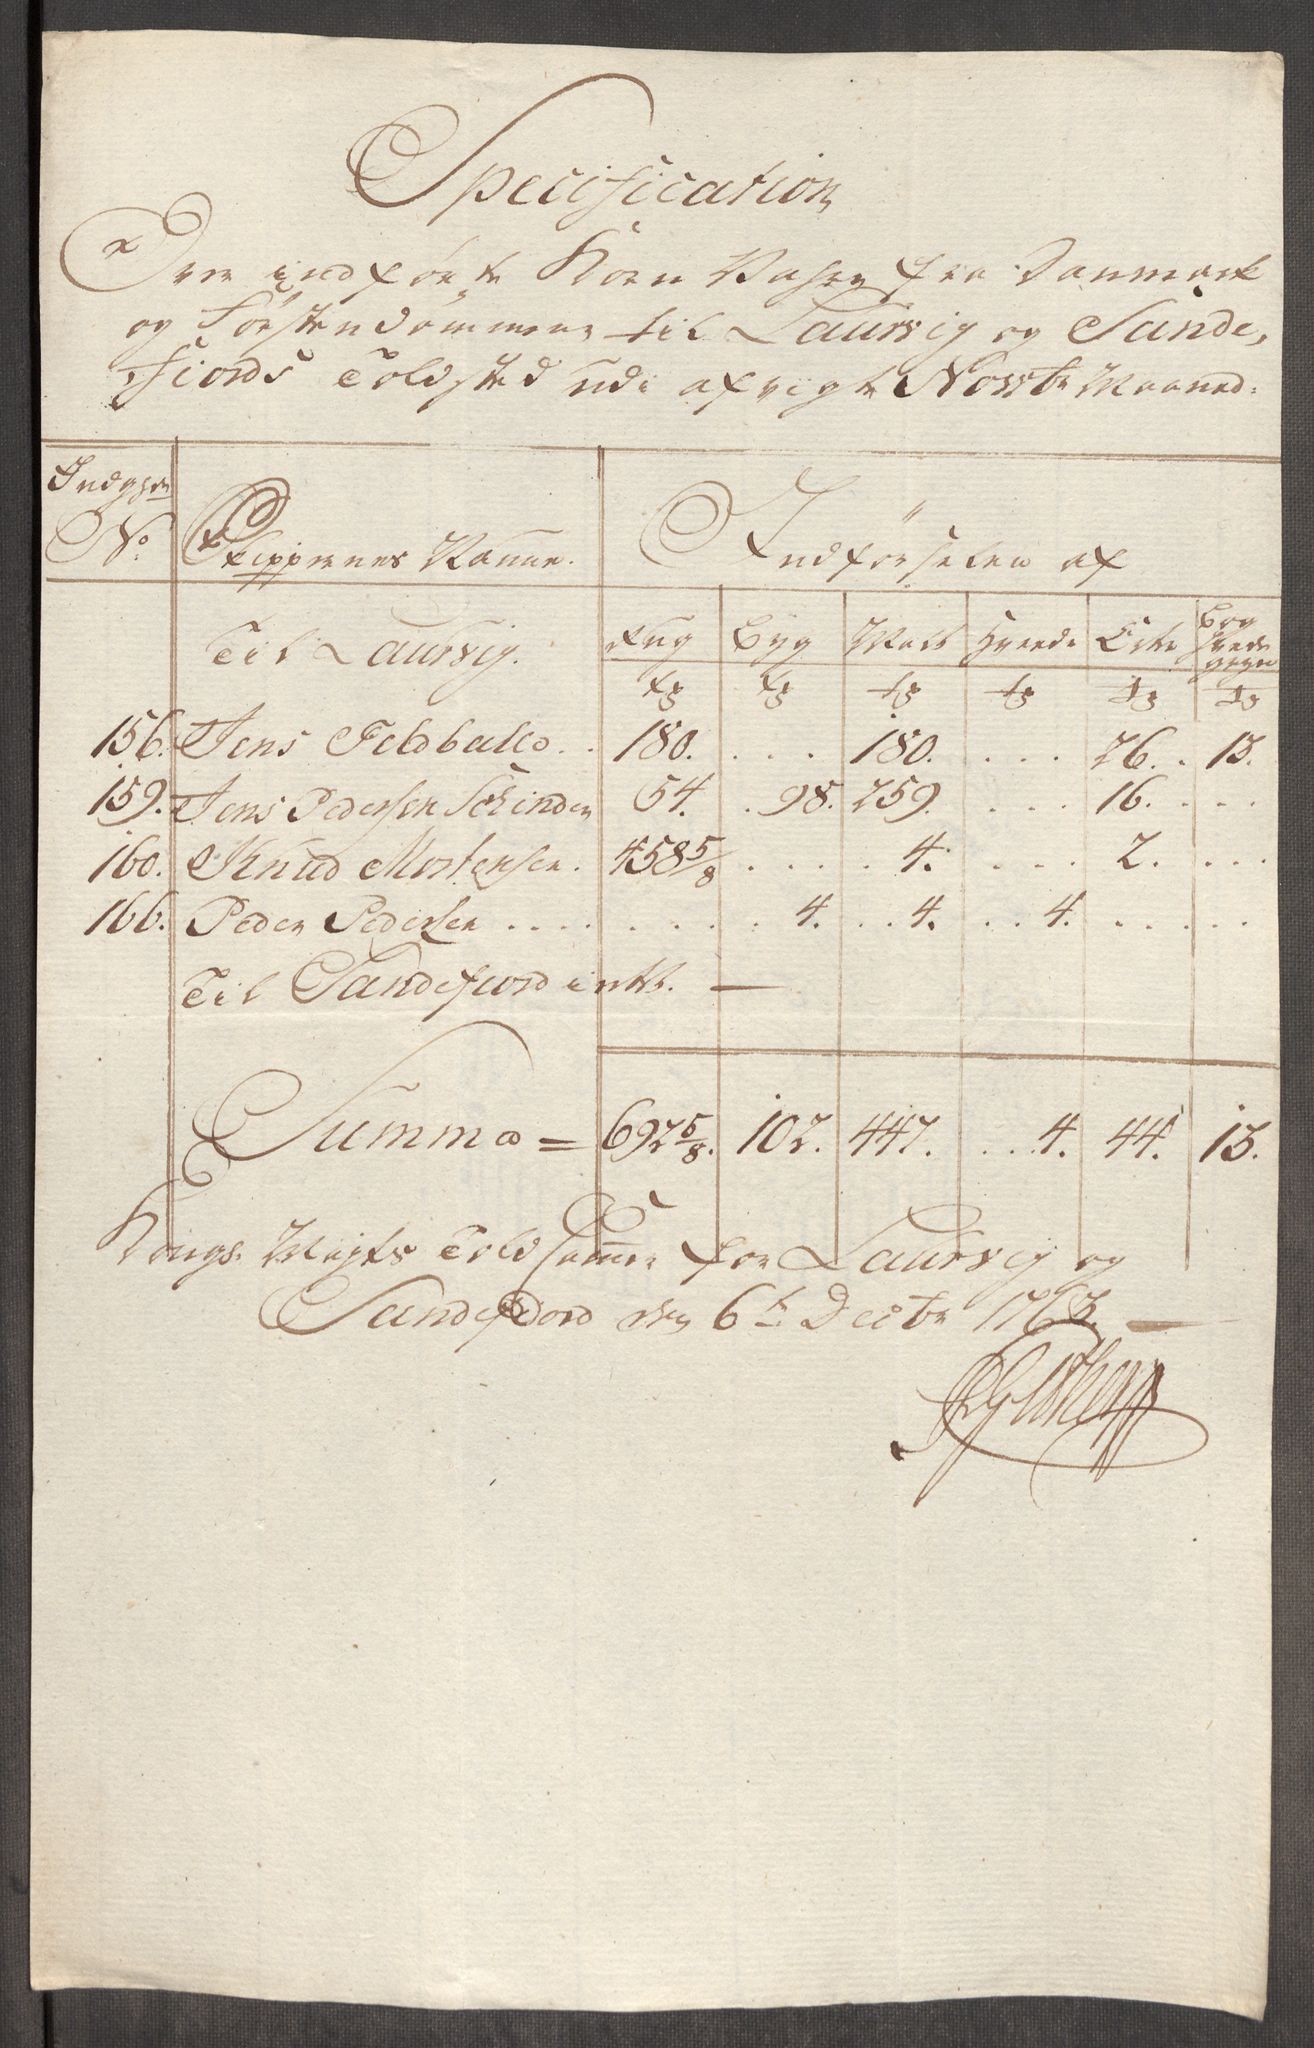 Specification
Over indførte Korn Vahre fra Danmark
og Førstendømmene til Laurvig og Sande,
Fiords Toldsted udi afvigte Novbr Maaned:
Indgaaende
No. Skippernes Nafne. Indførselen af
Til Laurvig. Rug Byg Malt Hvede Erter Bog
Hvede
gryn
Tr Tr Tr Tr Tr Tr
156. Jens Feldballe . . 180. . . . 180. . . . 26. . 13.
159. Jens Pedersen Schinder 54. . 98. 259. . . . 16. . . .
160. Knud Mortensen. 458 5/8 . . . . . 4. . . . 2. . . .
166. Peder Pedersen . . . . . . . . 4. . . 4. . . 4. . . . . .
Til Sandefiord intet. —
Summa = 692 5/8. 102. 447. . . 4. 44. 13.
Kongl. Mayts Told Cammer for Laurvig og
Sandefiord den 6te Decbr 1763. —